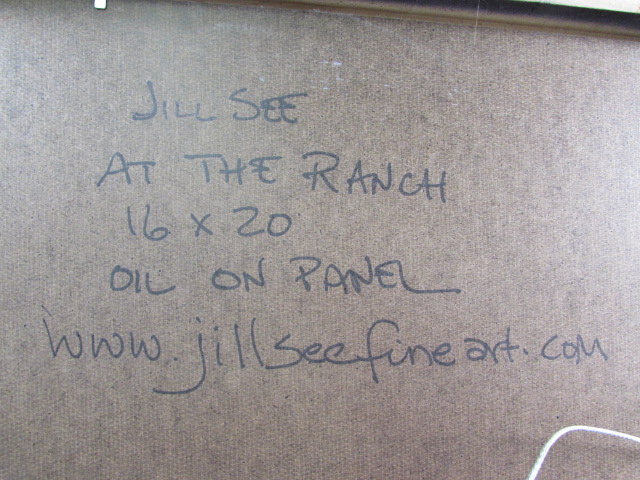 JILL SEE
AT THE RANCH
16 x 20
OIL ON PANEL
www.jillseefineart.com